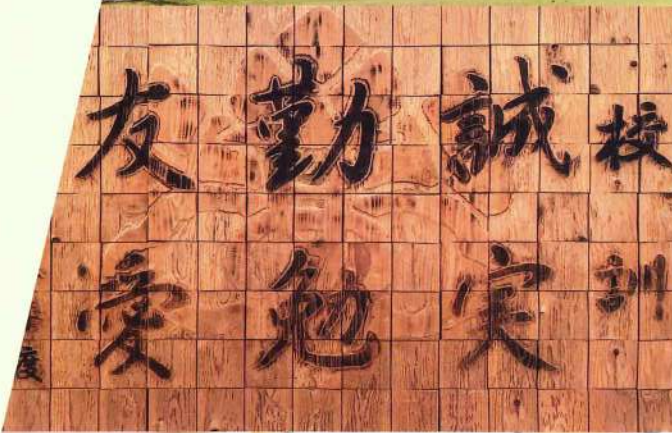 校訓
誠実
勤勉
友愛